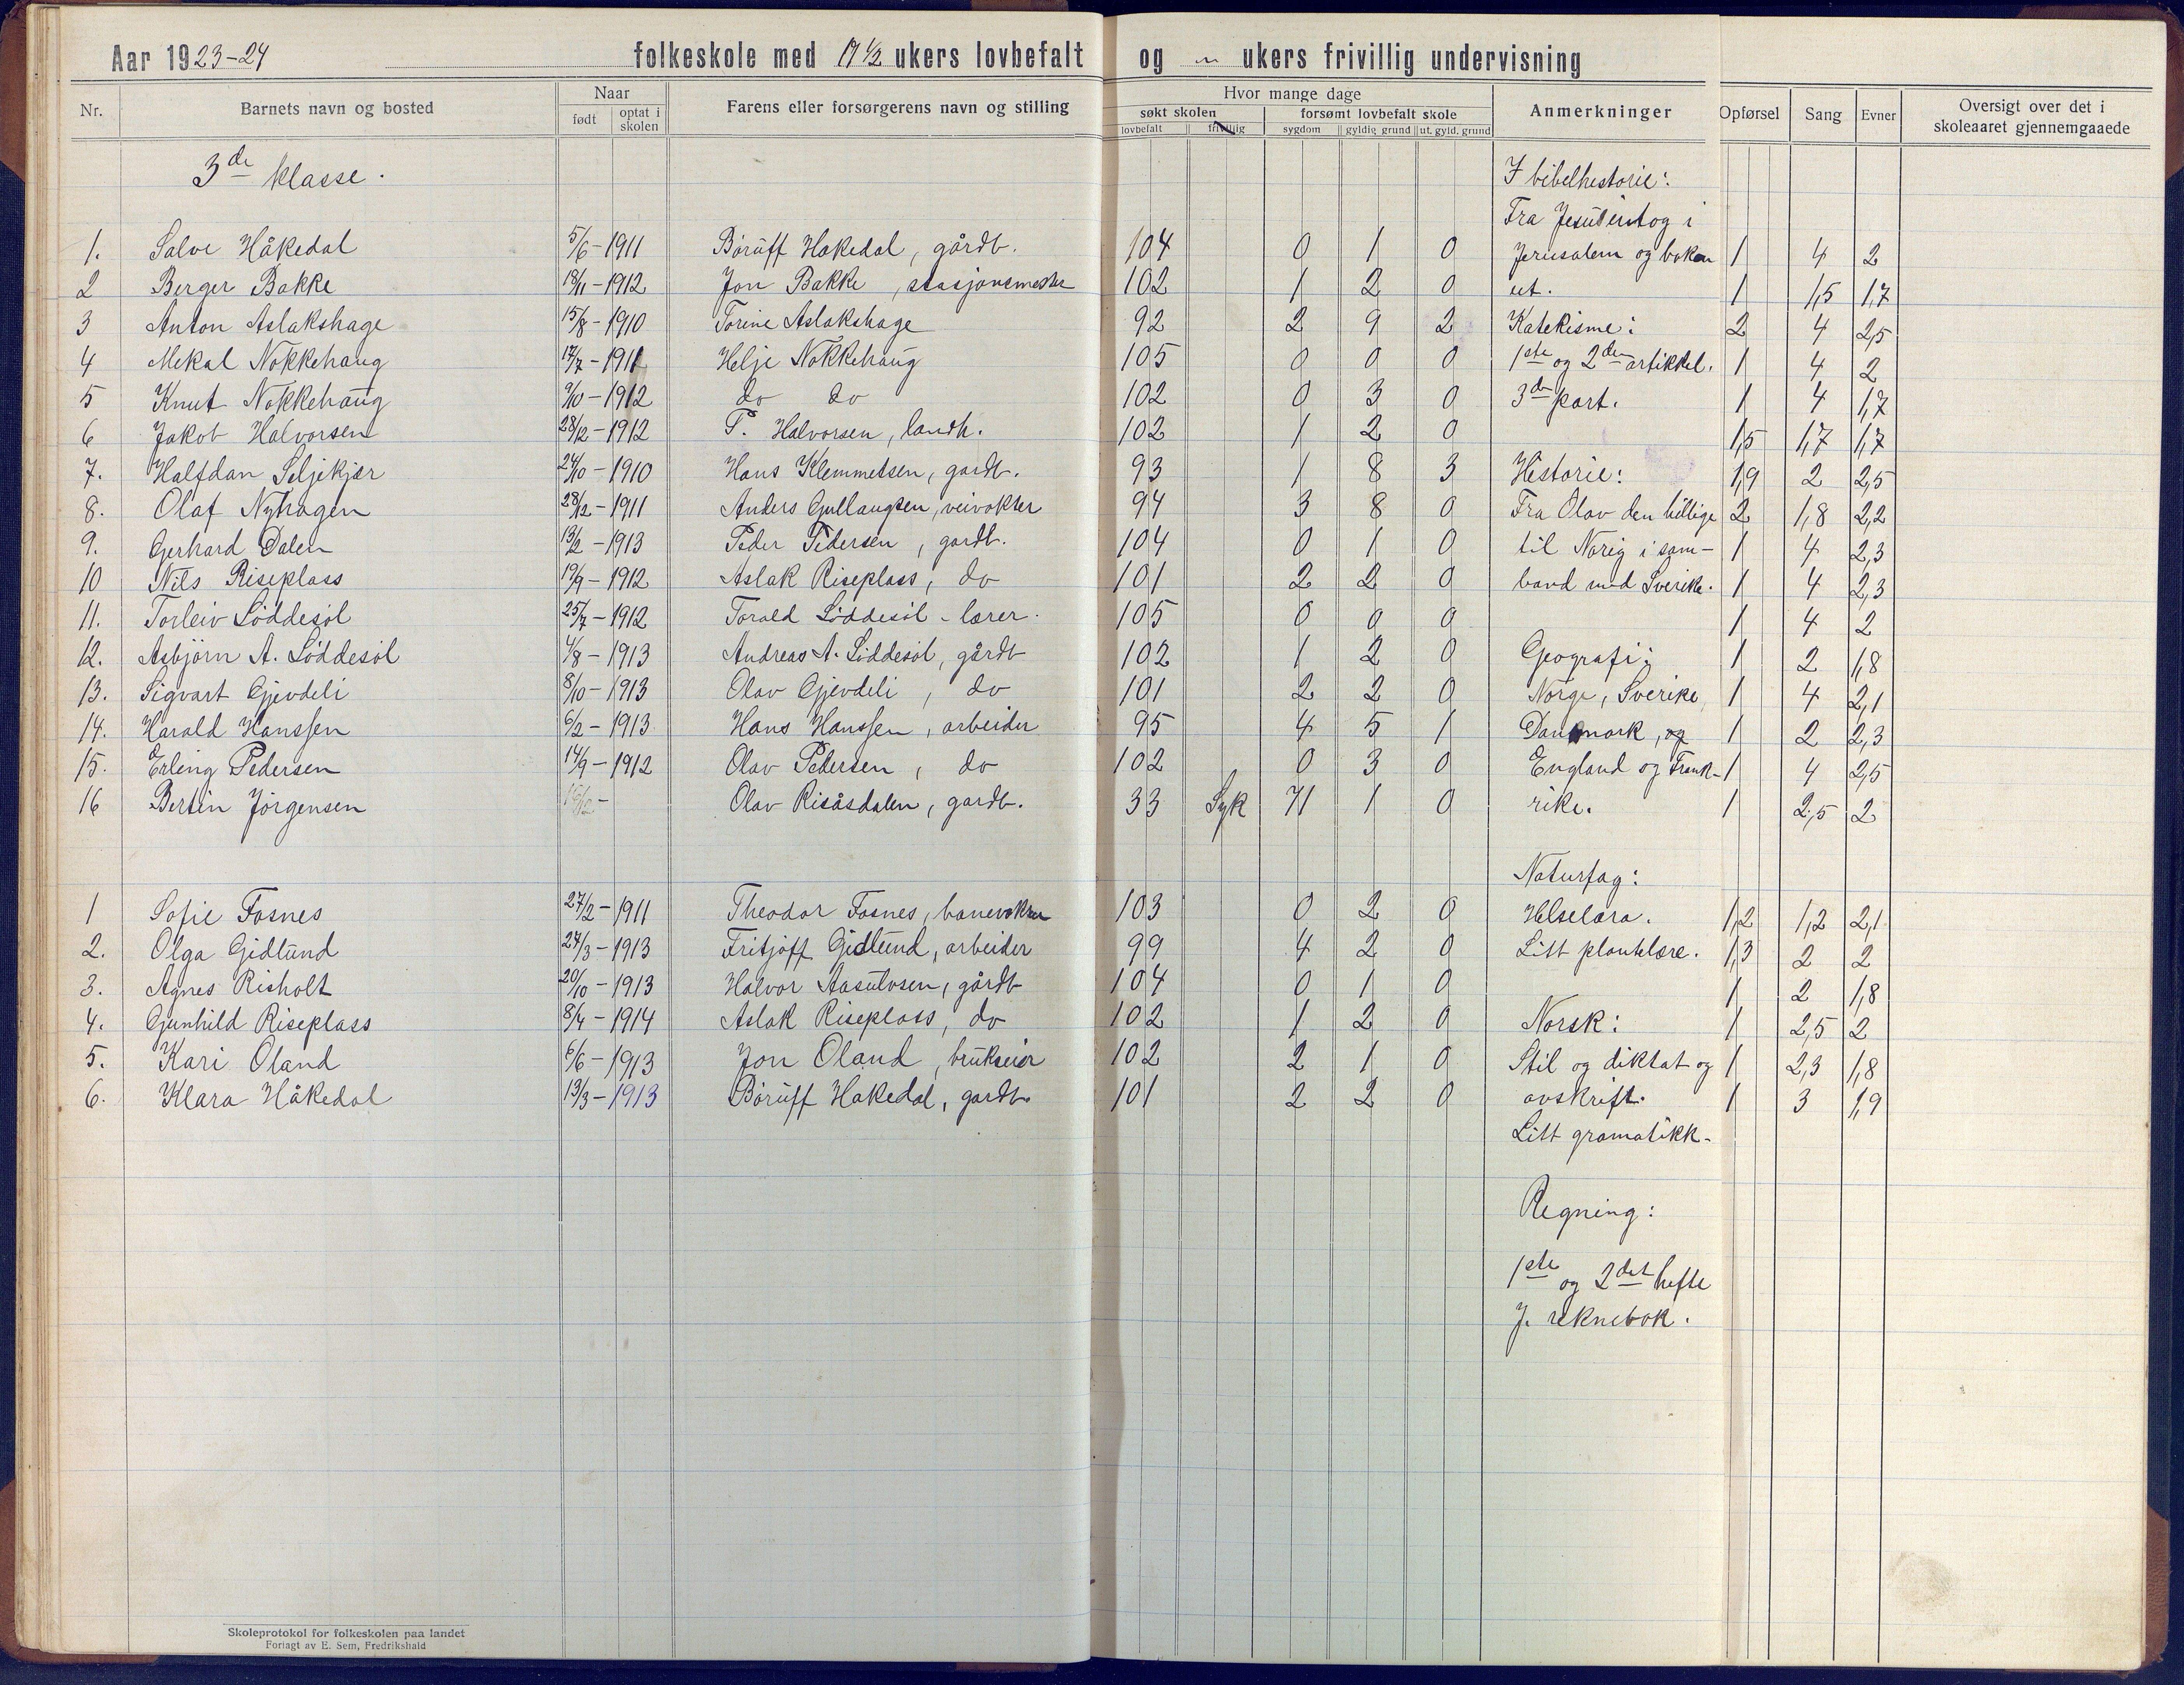 Aar 1923-24 folkeskole med 17 1/2 ukers lovbefalt og " ukers frivillig undervisning
Nr. Barnets navn og bosted Naar født optat i skolen Farens eller forsørgerens navn og stilling Hvor mange dage søkt skolen lovbefalt frivillig forsømt lovbefalt skole sygdom gyldig grund ut. gyld. grund Anmerkninger Opførsel Sang Evner Oversigt over det i skoleaaret gjennemgaaede
3de klasse. I bibelhistorie:
Fra Jesu inntog i
1. Salve Håkedal 5/6-1911 Böruff Hakedal, gårdb. 104 0 1 0 Jerusalem og boken 1 4 2
2 Berger Bakke 18/11-1912 Jon Bakke, stasjonsmester 102 1 2 0 ut. 1 1,5 1,7
3 Anton Aslakshage 15/8-1910 Torine Aslakshage 92 2 9 2 Katekisme: 2 4 2,5
4 Mekal Nokkehaug 17/7-1911 Helje Nokkehaug 105 0 0 0 1ste og 2den artikkel. 1 4 2
5 Knut Nokkehaug 9/10-1912 do do 102 0 3 0 3de part. 1 4 1,7
6 Jakob Halvorsen 28/12-1912 T. Halvorsen, landh. 102 1 2 0 1,5 1,7 1,7
7. Halfdan Seljekjær 24/10-1910 Hans Klemmetsen, gardb. 93 1 8 3 Historie: 1,9 2 2,5
8. Olaf Nyhagen 28/12-1911 Anders Gullaugsen, veivokter 94 3 8 0 Fra Olav den hellige 2 1,8 2,2
9. Gerhard Dalen 13/2-1913 Peder Pedersen, gardb. 104 0 1 0 til Norig i sam- 1 4 2,3
10 Nils Riseplass 19/9-1912 Aslak Riseplass, do 101 2 2 0 band med Sverike. 1 4 2,3
11. Torleiv Löddesöl 25/7-1912 Torald Löddesöl - lærer. 105 0 0 0 1 4 2
12. Asbjörn A. Löddesöl 4/8-1913 Andreas A. Löddesöl, gårdb 102 1 2 0 Geografi: 1 2 1,8
13. Sigvart Gjevdeli 8/10-1913 Olav Gjevdeli, do 101 2 2 0 Norge, Sverike, 1 4 2,1
14. Harald Hanssen 6/2-1913 Hans Hanssen, arbeider 95 4 5 1 Danmark, og 1 2 2,3
15. Erling Pedersen 14/9-1912 Olav Pedersen, do 102 0 3 0 England og Frank- 1 4 2,5
16 Bertin Jörgensen Olav Risåsdalen, gardb. 33 Syk 71 1 0 rike. 1 2,5 2
Naturfag:
1 Sofie Fosnes 27/2-1911 Theodor Fosnes, banevokter 103 0 2 0 Helselæra. 1,2 1,2 2,1
2. Olga Gidlund 27/3-1913 Fritjoff Gidlund, arbeider 99 4 2 0 Litt plantelære. 1,3 2 2
3. Agnes Risholt 20/10-1913 Halvor Aasulvsen, gårdb 104 0 1 0 1 2 1,8
4. Gunhild Riseplass 8/4-1914 Aslak Riseplass, do 102 1 2 0 Norsk: 1 2,5 2
5. Kari Öland 6/6-1913 Jon Öland, brukseier 102 2 1 0 Stil og diktat og 1 2,3 1,8
6. Klara Håkedal 13/3-1913 Böruff Hakedal, gardb. 101 2 2 0 avskrift. 1 3 1,9
Litt gramatikk-
Regning:
1ste og 2det hefte
J. reknebok.
Skoleprotokol for folkeskolen paa landet
Forlagt av E. Sem, Fredrikshald